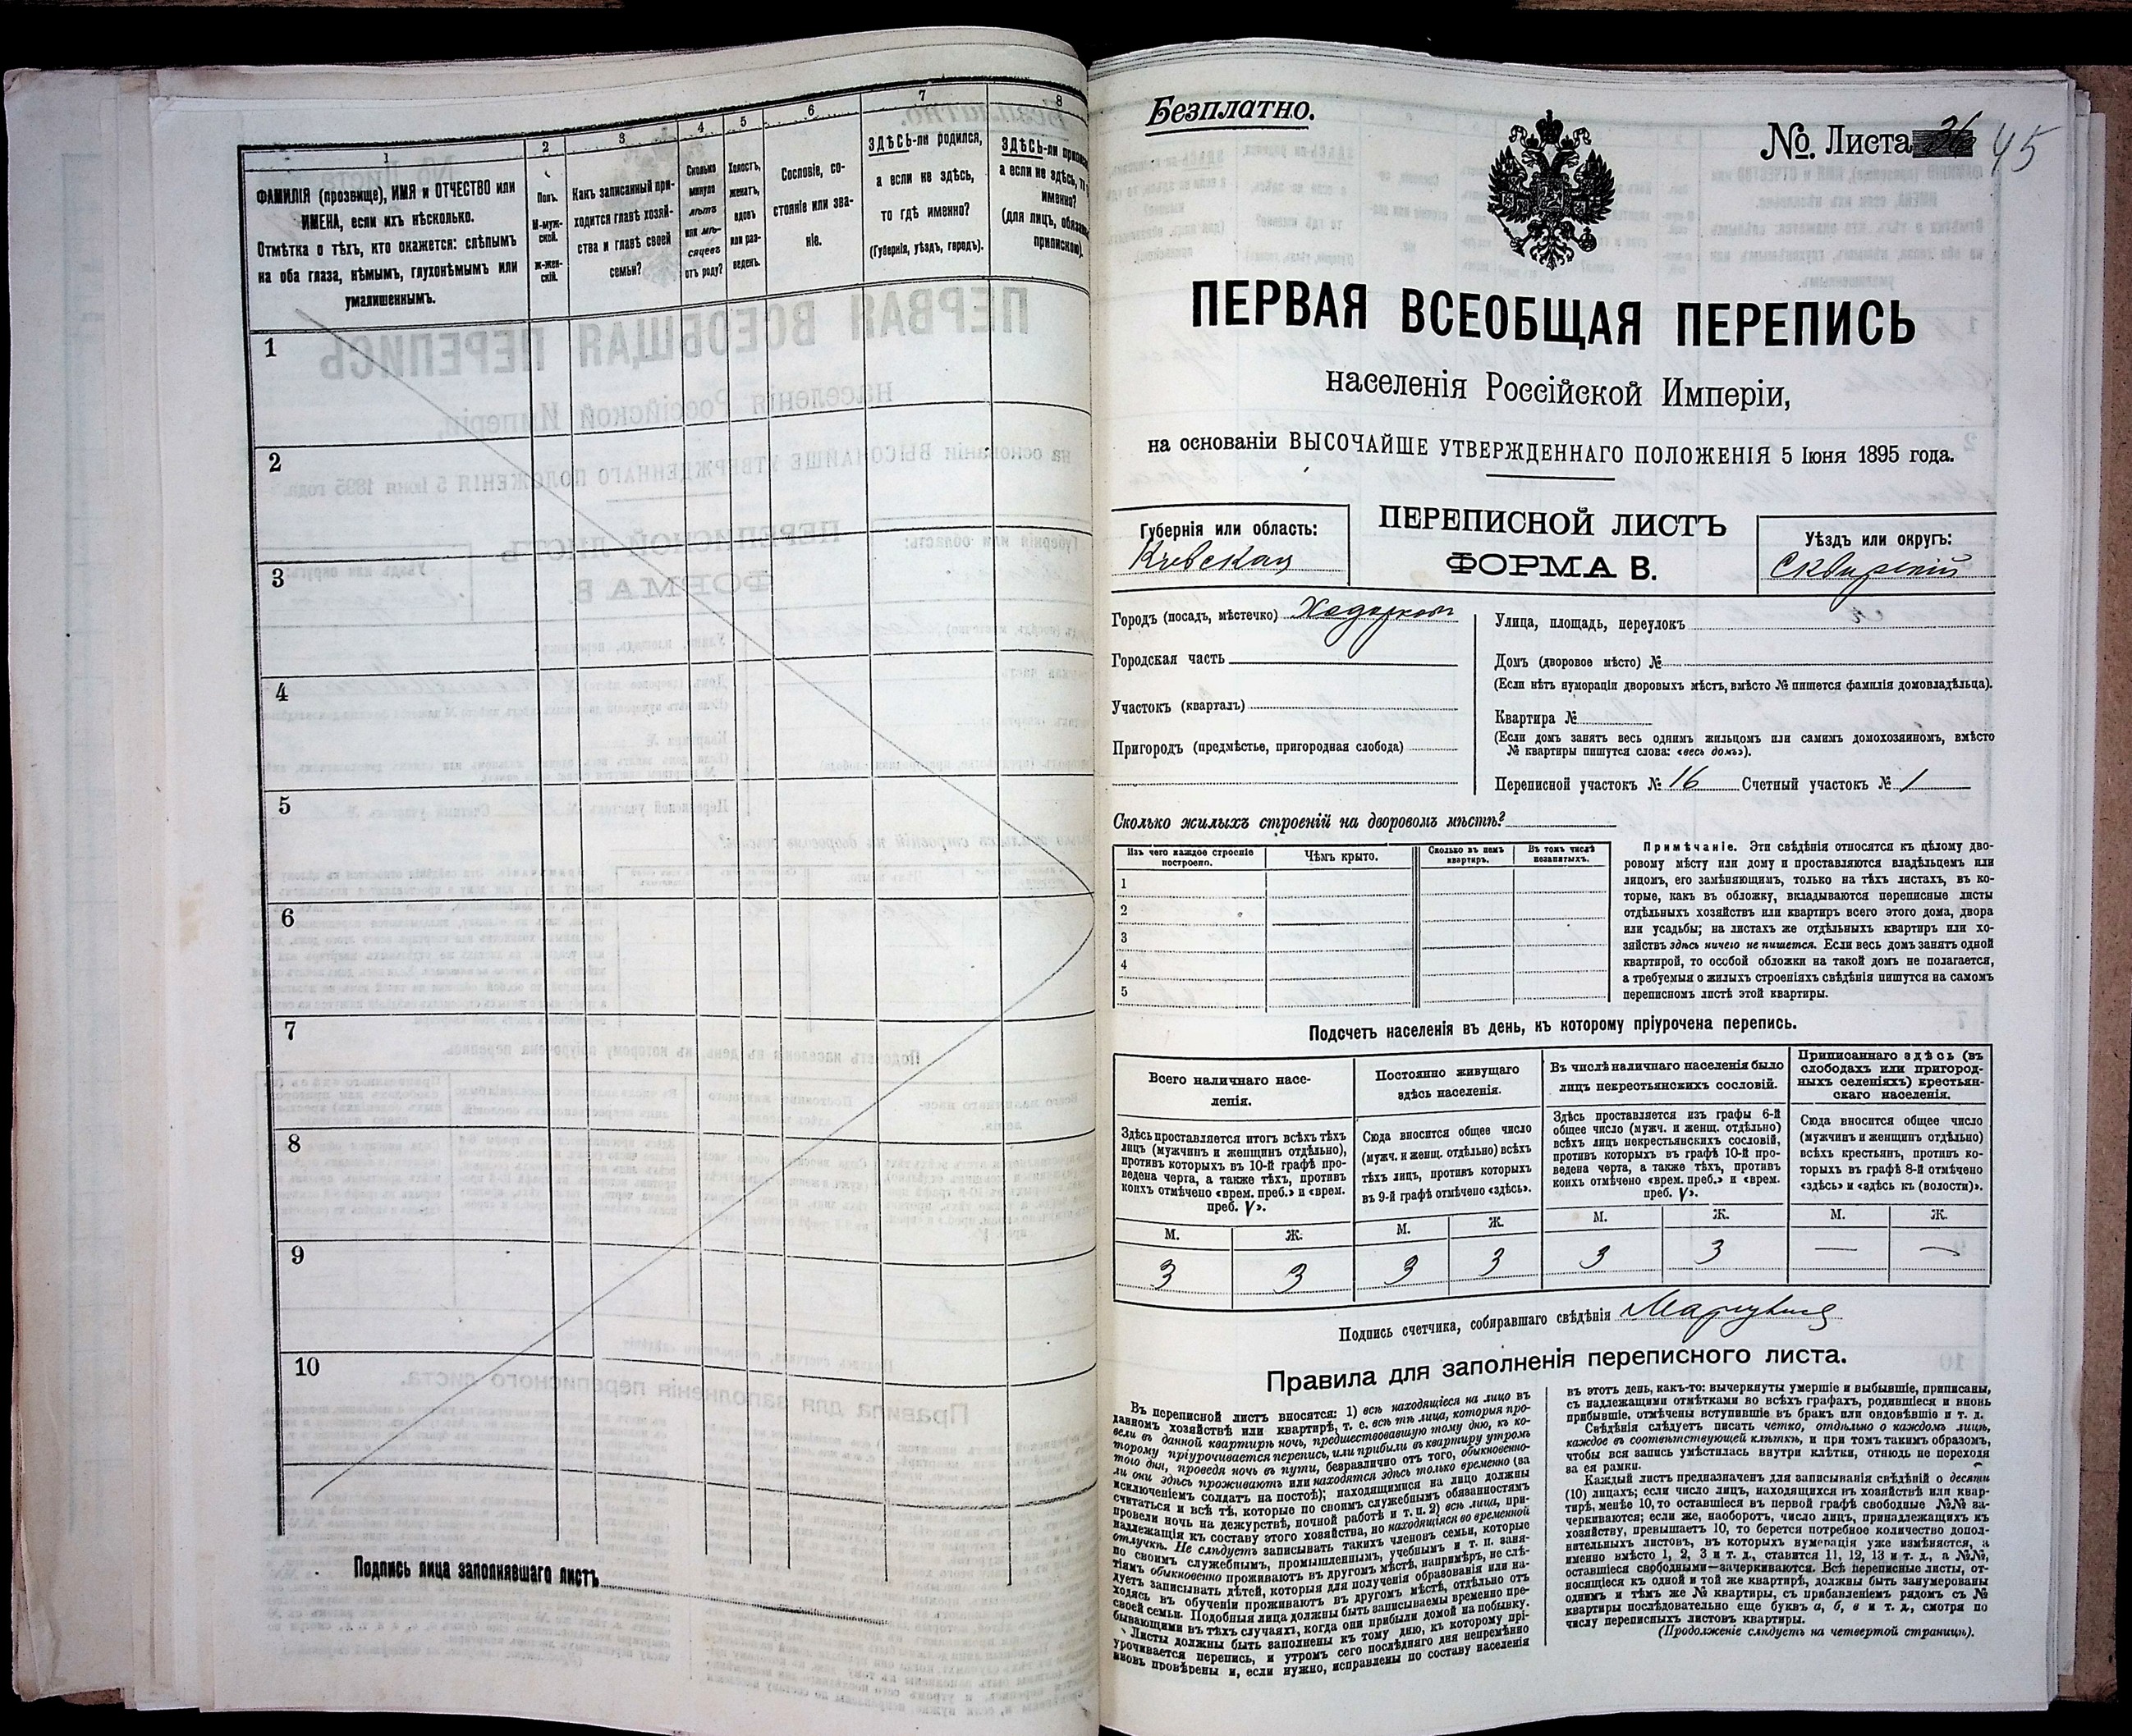 1
2
3
4
5
6
7
8
ФАМИЛІЯ (прозвище), ИМЯ и ОТЧЕСТВО или
ИМЕНА, если ихъ нѣсколько.
Отмѣтка о тѣхъ, кто окажется: слѣпымъ
на оба глаза, нѣмымъ, глухонѣмымъ или
умалишеннымъ.
Полъ.
М-муж-
ской.
ж-жен-
скій.
Какъ записанный при-
ходится главѣ хозяй-
ства и главѣ своей
семьи?
Сколько
минуло
лѣтъ
или мѣ-
сяцевъ
отъ роду?
Холостъ,
женатъ,
вдовъ
или раз-
веденъ.
Сословіе, со-
стояніе или зва-
ніе.
ЗДѢСЬ-ли родился,
а если не здѣсь,
то гдѣ именно?
(Губернія, уѣздъ, городъ).
ЗДѢСЬ-ли
а если не здѣсь,
именно?
(для лицъ,
припискою).
1
2
3
4
5
6
7
8
9
10
Подпись лица заполнявшаго листъ
Безплатно.
№ Листа 36 45
ПЕРВАЯ ВСЕОБЩАЯ ПЕРЕПИСЬ
населенія Россійской Имперіи,
на основаніи ВЫСОЧАЙШЕ УТВЕРЖДЕННАГО ПОЛОЖЕНІЯ 5 Іюня 1895 года.
Губернія или область:
Кіевская
ПЕРЕПИСНОЙ ЛИСТЪ
ФОРМА В.
Уѣздъ или округъ:
Сквирскій
Городъ (посадъ, мѣстечко) Ходорков
Городская часть
Участокъ (кварталъ)
Пригородъ (предмѣстье, пригородная слобода)
Улица, площадь, переулокъ
Домъ (дворовое мѣсто) №
(Если нѣтъ нумораціи дворовыхъ мѣстъ, вмѣсто № пишется фамилія домовладѣльца).
Квартира №
(Если домъ занятъ весь однимъ жильцомъ или самимъ домохозяиномъ, вмѣсто
№ квартиры пишутся слова: «весь домъ»).
Переписной участокъ № 16 Счетный участокъ № 1
Сколько жилыхъ строеній на дворовомъ мѣстѣ?
Изъ чего каждое строеніе
построено.
Чѣмъ крыто.
Сколько въ немъ
квартиръ.
Въ томъ числѣ
незанятыхъ.
1
2
3
4
5
Примѣчаніе. Эти свѣдѣнія относятся къ цѣлому дво-
ровому мѣсту или дому и проставляются владѣльцемъ или
лицомъ, его замѣняющимъ, только на тѣхъ листахъ, въ ко-
торые, какъ въ обложку, вкладываются переписные листы
отдѣльныхъ хозяйствъ или квартиръ всего этого дома, двора
или усадьбы; на листахъ же отдѣльныхъ квартиръ или хо-
зяйствъ здѣсь ничего не пишется. Если весь домъ занятъ одной
квартирой, то особой обложки на такой домъ не полагается,
а требуемыя о жилыхъ строеніяхъ свѣдѣнія пишутся на самомъ
переписномъ листѣ этой квартиры.
Подсчетъ населенія въ день, къ которому пріурочена перепись.
Всего наличнаго насе-
ленія.
Постоянно живущаго
здѣсь населенія.
Въ числѣ наличнаго населенія было
лицъ некрестьянскихъ сословій.
Приписаннаго здѣсь (въ
слободахъ или пригород-
ныхъ селеніяхъ) крестьян-
скаго населенія.
Здѣсь проставляется итогъ всѣхъ тѣхъ
лицъ (мужчинъ и женщинъ отдѣльно),
противъ которыхъ въ 10-й графѣ про-
ведена черта, а также тѣхъ, противъ
коихъ отмѣчено «врем. преб.» и «врем.
преб. V».
Сюда вносится общее число
(мужч. и женщ. отдѣльно) всѣхъ
тѣхъ лицъ, противъ которыхъ
въ 9-й графѣ отмѣчено «здѣсь».
Здѣсь проставляется изъ графы 6-й
общее число (мужч. и женщ. отдѣльно)
всѣхъ лицъ некрестьянскихъ сословій,
противъ которыхъ въ графѣ 10-й про-
ведена черта, а также тѣхъ, противъ
коихъ отмѣчено «врем. преб.» и «врем.
преб. V».
Сюда вносится общее число
(мужчинъ и женщинъ отдѣльно)
всѣхъ крестьянъ, противъ ко-
торыхъ въ графѣ 8-й отмѣчено
«здѣсь» и «здѣсь къ (волости)».
М. Ж. М. Ж. М. Ж. М. Ж.
3 3 3 3 3 3 — —
Подпись счетчика, собиравшаго свѣдѣнія
Правила для заполненія переписного листа.
Въ переписной листъ вносятся: 1) всѣ находящіеся на лицо въ
данномъ хозяйствѣ или квартирѣ, т. е. всѣ тѣ лица, которыя про-
вели въ данной квартирѣ ночь, предшествовавшую тому дню, къ ко-
торому пріурочивается перепись, или прибыли въ квартиру утромъ
того дня, проведя ночь въ пути, безразлично отъ того, обыкновенно-
ли они здѣсь проживаютъ или находятся здѣсь только временно (за
исключеніемъ солдатъ на постоѣ); находящимися на лицо должны
считаться и всѣ тѣ, которые по своимъ служебнымъ обязанностямъ
провели ночь на дежурствѣ, ночной работѣ и т. п. 2) всѣ лица, при-
надлежащія къ составу этого хозяйства, но находящіяся во временной
отлучкѣ. Не слѣдуетъ записывать такихъ членовъ семьи, которые
по своимъ служебнымъ, промышленнымъ, учебнымъ и т. п. заня-
тіямъ обыкновенно проживаютъ въ другомъ мѣстѣ, напримѣръ, не слѣ-
дуетъ записывать дѣтей, которыя для полученія образованія или на-
ходясь въ обученіи проживаютъ въ другомъ мѣстѣ, отдѣльно отъ
своей семьи. Подобныя лица должны быть записываемы временно пре-
бывающими въ тѣхъ случаяхъ, когда они прибыли домой на побывку.
Листы должны быть заполнены къ тому дню, къ которому прі-
урочивается перепись, и утромъ сего послѣдняго дня непремѣнно
вновь провѣрены и, если нужно, исправлены по составу населенія
въ этотъ день, какъ-то: вычеркнуты умершіе и выбывшіе, приписаны,
съ надлежащими отмѣтками во всѣхъ графахъ, родившіеся и вновь
прибывшіе, отмѣчены вступившіе въ бракъ или овдовѣвшіе и т. д.
Свѣдѣнія слѣдуетъ писать четко, отдѣльно о каждомъ лицѣ,
каждое въ соотвѣтствующей клѣткѣ, и при томъ такимъ образомъ,
чтобы вся запись умѣстилась внутри клѣтки, отнюдь не переходя
за ея рамки.
Каждый листъ предназначенъ для записыванія свѣдѣній о десяти
(10) лицахъ; если число лицъ, находящихся въ хозяйствѣ или квар-
тирѣ, менѣе 10, то оставшіеся въ первой графѣ свободные №№ за-
черкиваются; если же, наоборотъ, число лицъ, принадлежащихъ къ
хозяйству, превышаетъ 10, то берется потребное количество допол-
нительныхъ листовъ, въ которыхъ нумерація уже измѣняется, а
именно вмѣсто 1, 2, 3 и т. д., ставится 11, 12, 13 и т. д., а №№,
оставшіеся свободными—зачеркиваются. Всѣ переписные листы, от-
носящіеся къ одной и той же квартирѣ, должны быть занумерованы
однимъ и тѣмъ же № квартиры, съ прибавленіемъ рядомъ съ №
квартиры послѣдовательно еще буквъ а, б, в и т. д., смотря по
числу переписныхъ листовъ квартиры.
(Продолженіе слѣдуетъ на четвертой страницѣ).